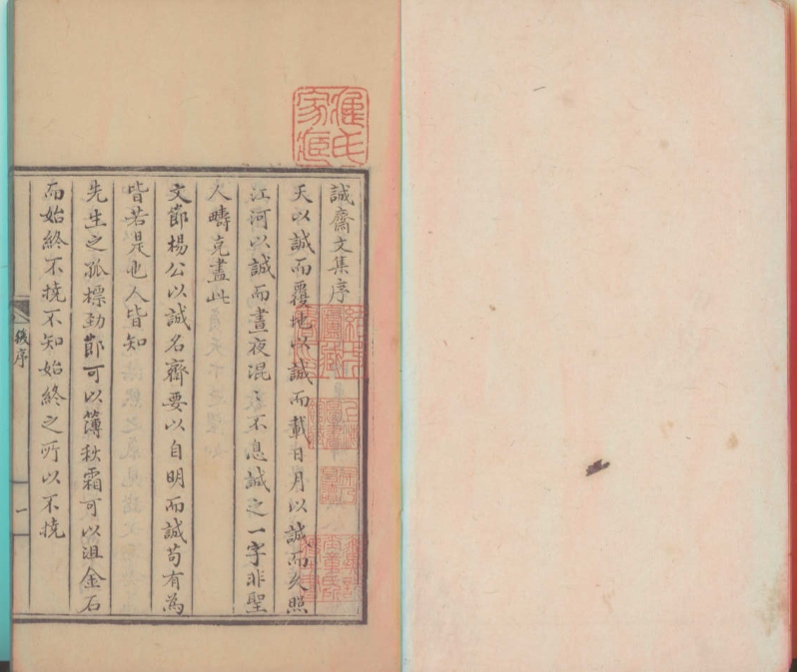 誠齋文集序
天以誠而覆地以誠而載日月以誠而久照
江河以誠而晝夜混々不息誠之一字非聖
人疇克盡此
文節楊公以誠名齋要以自明而誠苟有為
皆若是也人皆知
先生之孤標勁節可以薄秋霜可以沮金石
而始終不撓不知始終之所以不撓
序
一